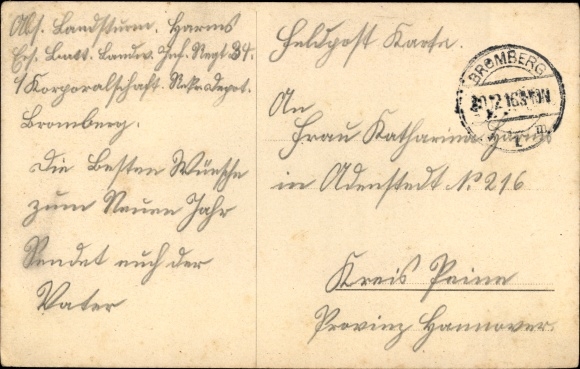 Abs. Landsturm. Harms
Ers. Batt. Landw. Inf. Regt 34.
1 Korporalschaft. Rekr. depot.
Bromberg.
Die Besten Wünsche
zum Neuen Jahr
Sendet euch der
Vater
Feldpost Karte.
BROMBERG
An
Frau Katharina Harms
in Adenstedt No 216
Kreis Peine
Provinz Hannover.